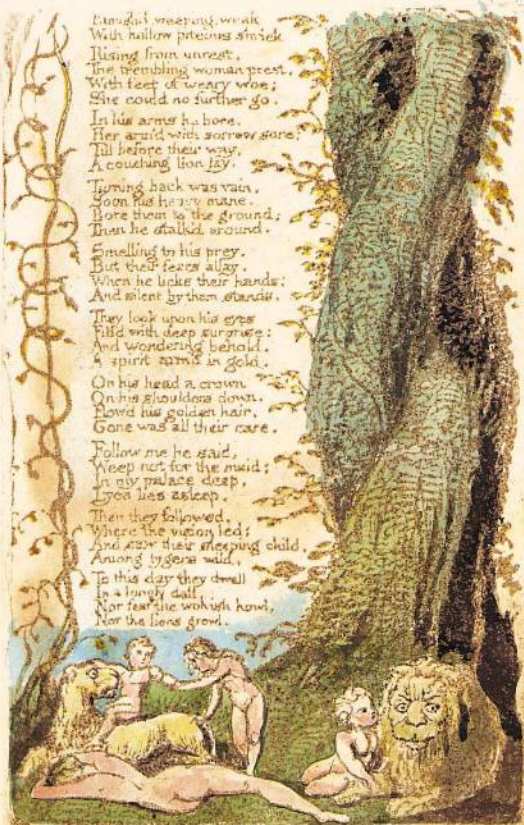 Famishd, weeping, weak
With hollow piteous shriek
Rising from unrest,
The trembling woman prest,
With feet of weary woe;
She could no further go.
In his arms he bore,
Her arm'd with sorrow sore:
Till before their way,
A couching lion lay.
Turning back was vain,
Soon his heavy mane,
Bore them to the ground;
Then he stalk'd around,
Smelling to his prey,
But their fears allay,
When he licks their hands:
And silent by them stands.
They look upon his eyes
Fill'd with deep surprise:
And wondering behold,
A spirit arm'd in gold.
On his head a crown
On his shoulders down,
Flow'd his golden hair,
Gone was all their care.
Follow me he said,
Weep not for the maid;
In my palace deep,
Lyca lies asleep.
Then they followed,
Where the vision led;
And saw their sleeping child,
Among tygers wild.
To this day they dwell
In a lonely dell
Nor fear the wolvish howl,
Nor the lions growl.